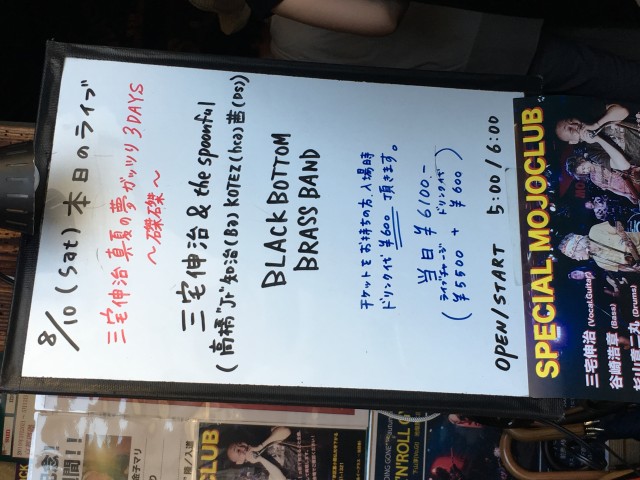 8/10 (Sat) 本日のライブ
三宅伸治 真夏の夢ガッツリ 3DAYS
～磔磔～
三宅伸治 & the spoonful
(高橋"Jr."知治(Ba) KOTEZ(hca) 茜(Ds))
BLACK BOTTOM
BRASS BAND
チケットをお持ちの方、入場時
ドリンク代 ¥600 頂きます。
当日 ¥6100.-
ライブチャージ ドリンク代
(¥5500 + ¥600)
OPEN/START 5:00/6:00
SPECIAL MOJOCLUB
三宅伸治 (Vocal.Guitar)
谷崎浩章 (Bass)
(Drums)
CLUB
'N'ROLL
金子マリ